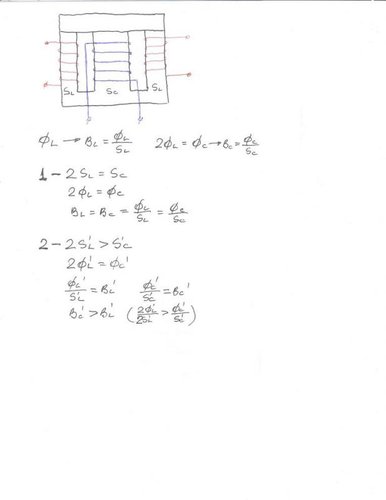 S_L S_C S_L
ϕ_L → B_L = ϕ_L/S_L 2ϕ_L = ϕ_C → B_C = ϕ_C/S_C
1 - 2S_L = S_C
2ϕ_L = ϕ_C
B_L = B_C = ϕ_L/S_L = ϕ_C/S_C
2 - 2S_L' > S_C'
2ϕ_L' = ϕ_C'
ϕ_L'/S_L' = B_L' ϕ_C'/S_C' = B_C'
B_C' > B_L' (2ϕ_L'/2S_L' > ϕ_C'/S_C')